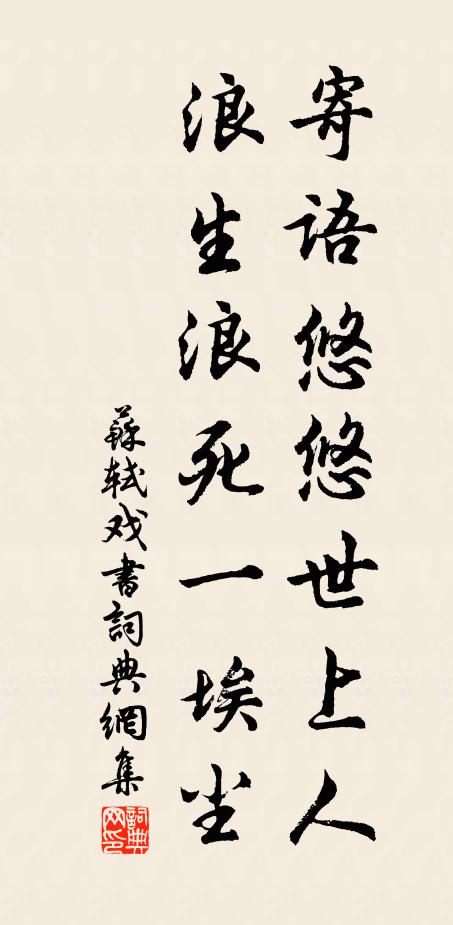 寄语悠悠世上人
浪生浪死一埃尘
蘇轼戏書詞典網集
詞典
网印